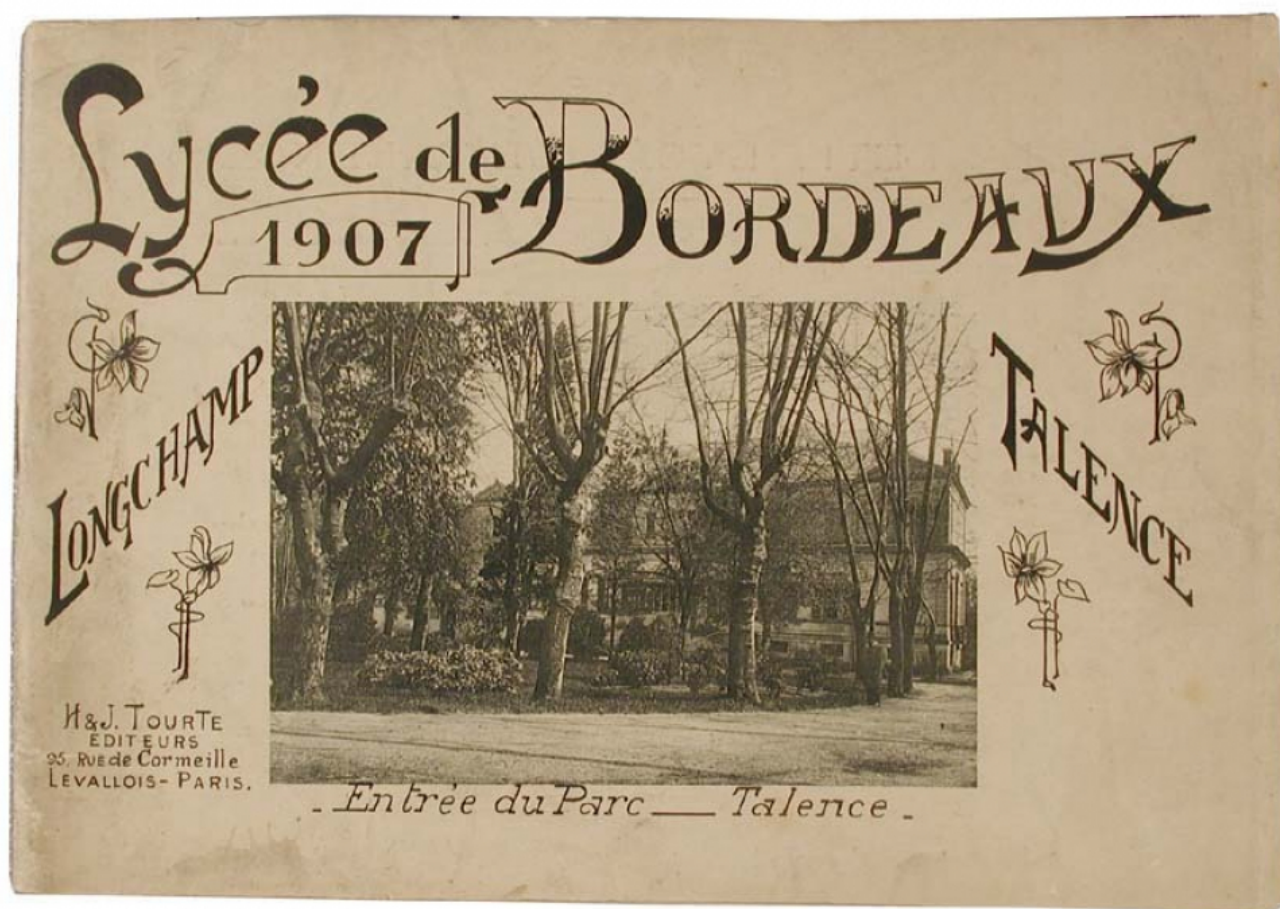 Lycée de BORDEAUX
1907
LONGCHAMP
TALENCE
H & J. TOURTE
EDITEURS
95, Rue de Cormeille
LEVALLOIS - PARIS.
- Entrée du Parc — Talence -